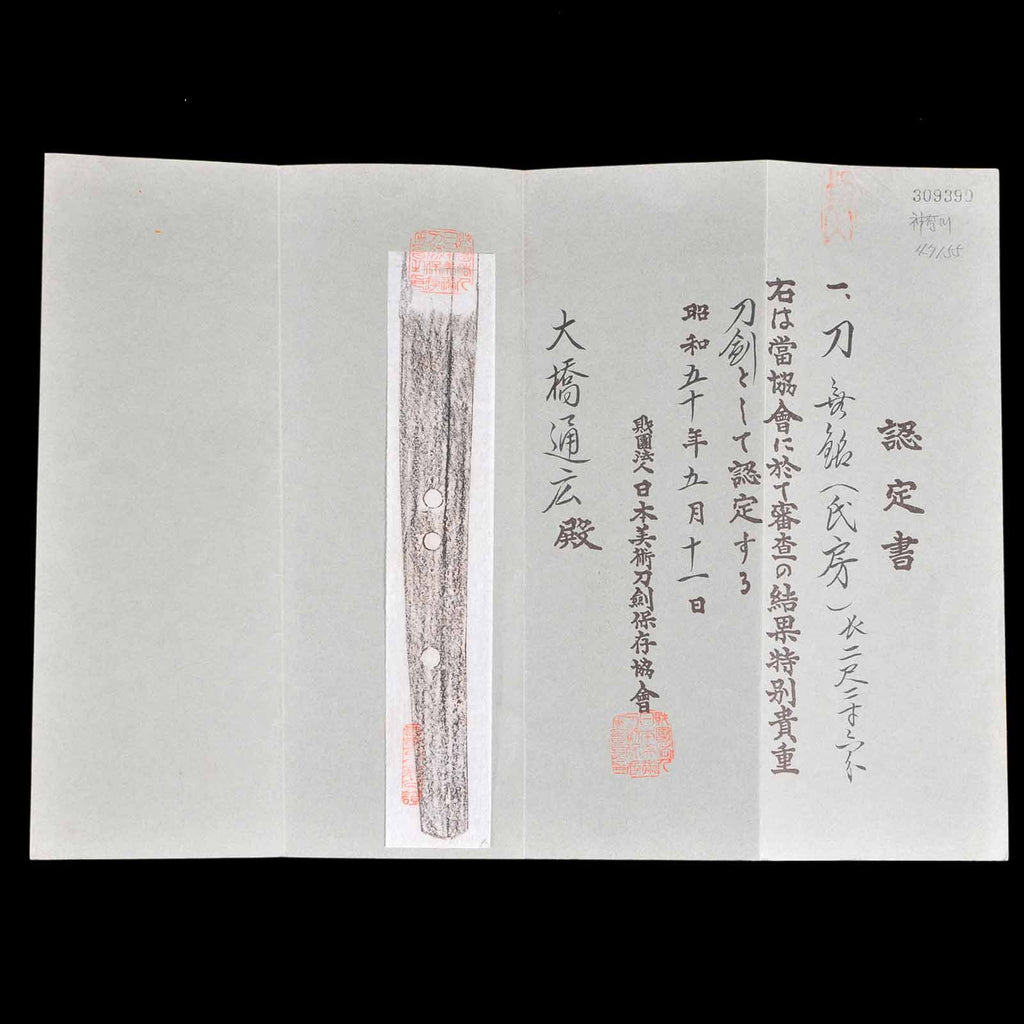 309390
神奈川
認定書
一、刀 無銘(氏房)長二尺二寸六分
右は當協會に於て審査の結果特別貴重
刀劍として認定する
昭和五十年五月十一日
財團法人日本美術刀劍保存協會
大橋通広殿